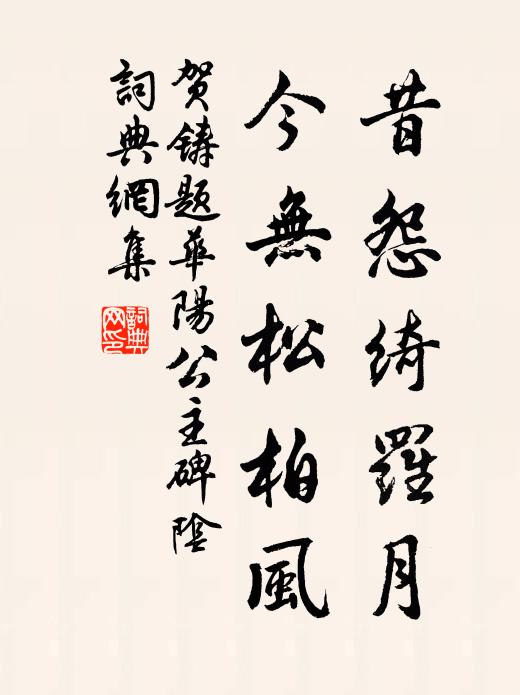 昔怨綺羅月
今無松柏風
贺鑄題華陽公主碑陰
詞典網集
詞典网印